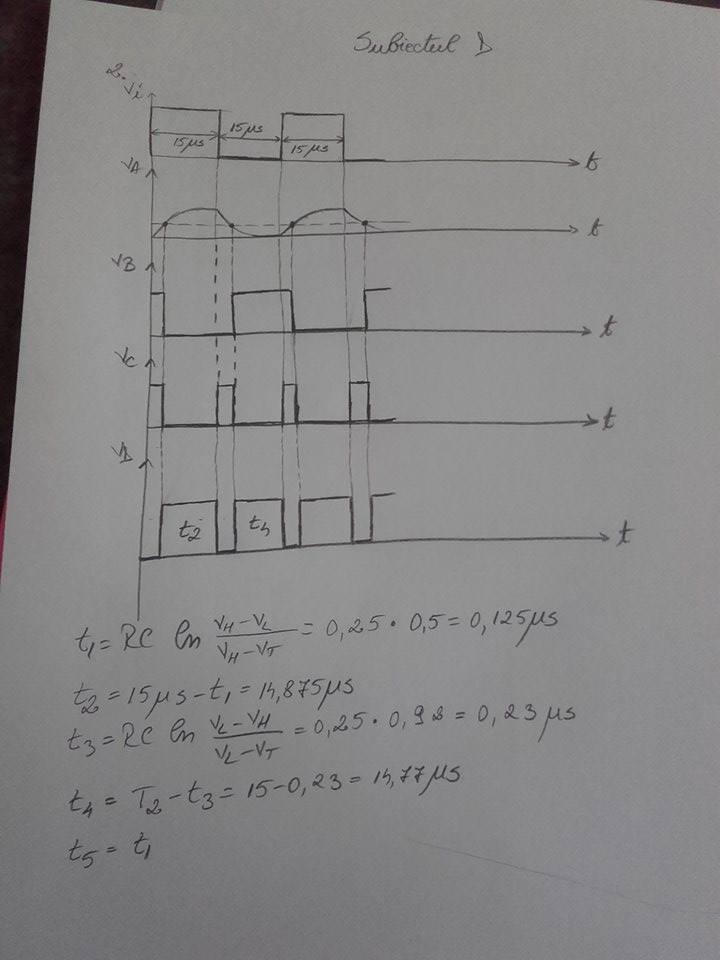 Subiectul D
2.
Vi
15μs
15μs
15μs
t
VA
t
VB
t
VC
t
VD
t2
t4
t
t1 = RC ln (VH-VL)/(VH-VT) = 0,25 · 0,5 = 0,125μs
t2 = 15μs - t1 = 14,875μs
t3 = RC ln (VL-VH)/(VL-VT) = 0,25 · 0,92 = 0,23μs
t4 = T2 - t3 = 15-0,23 = 14,77μs
t5 = t1